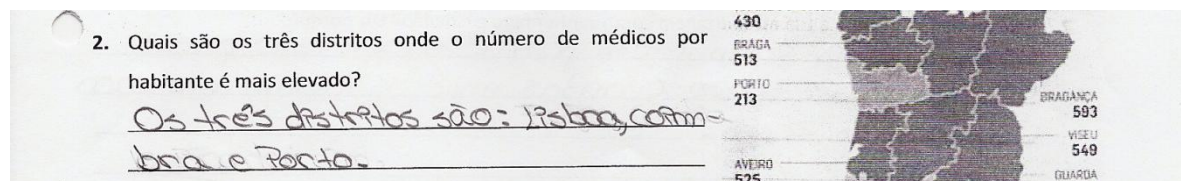 430
2. Quais são os três distritos onde o número de médicos por
habitante é mais elevado?
Os três distritos são: Lisboa, coim-
bra e Porto.
BRAGA
513
PORTO
213
AVEIRO
525
BRAGANÇA
593
VISEU
549
GUARDA